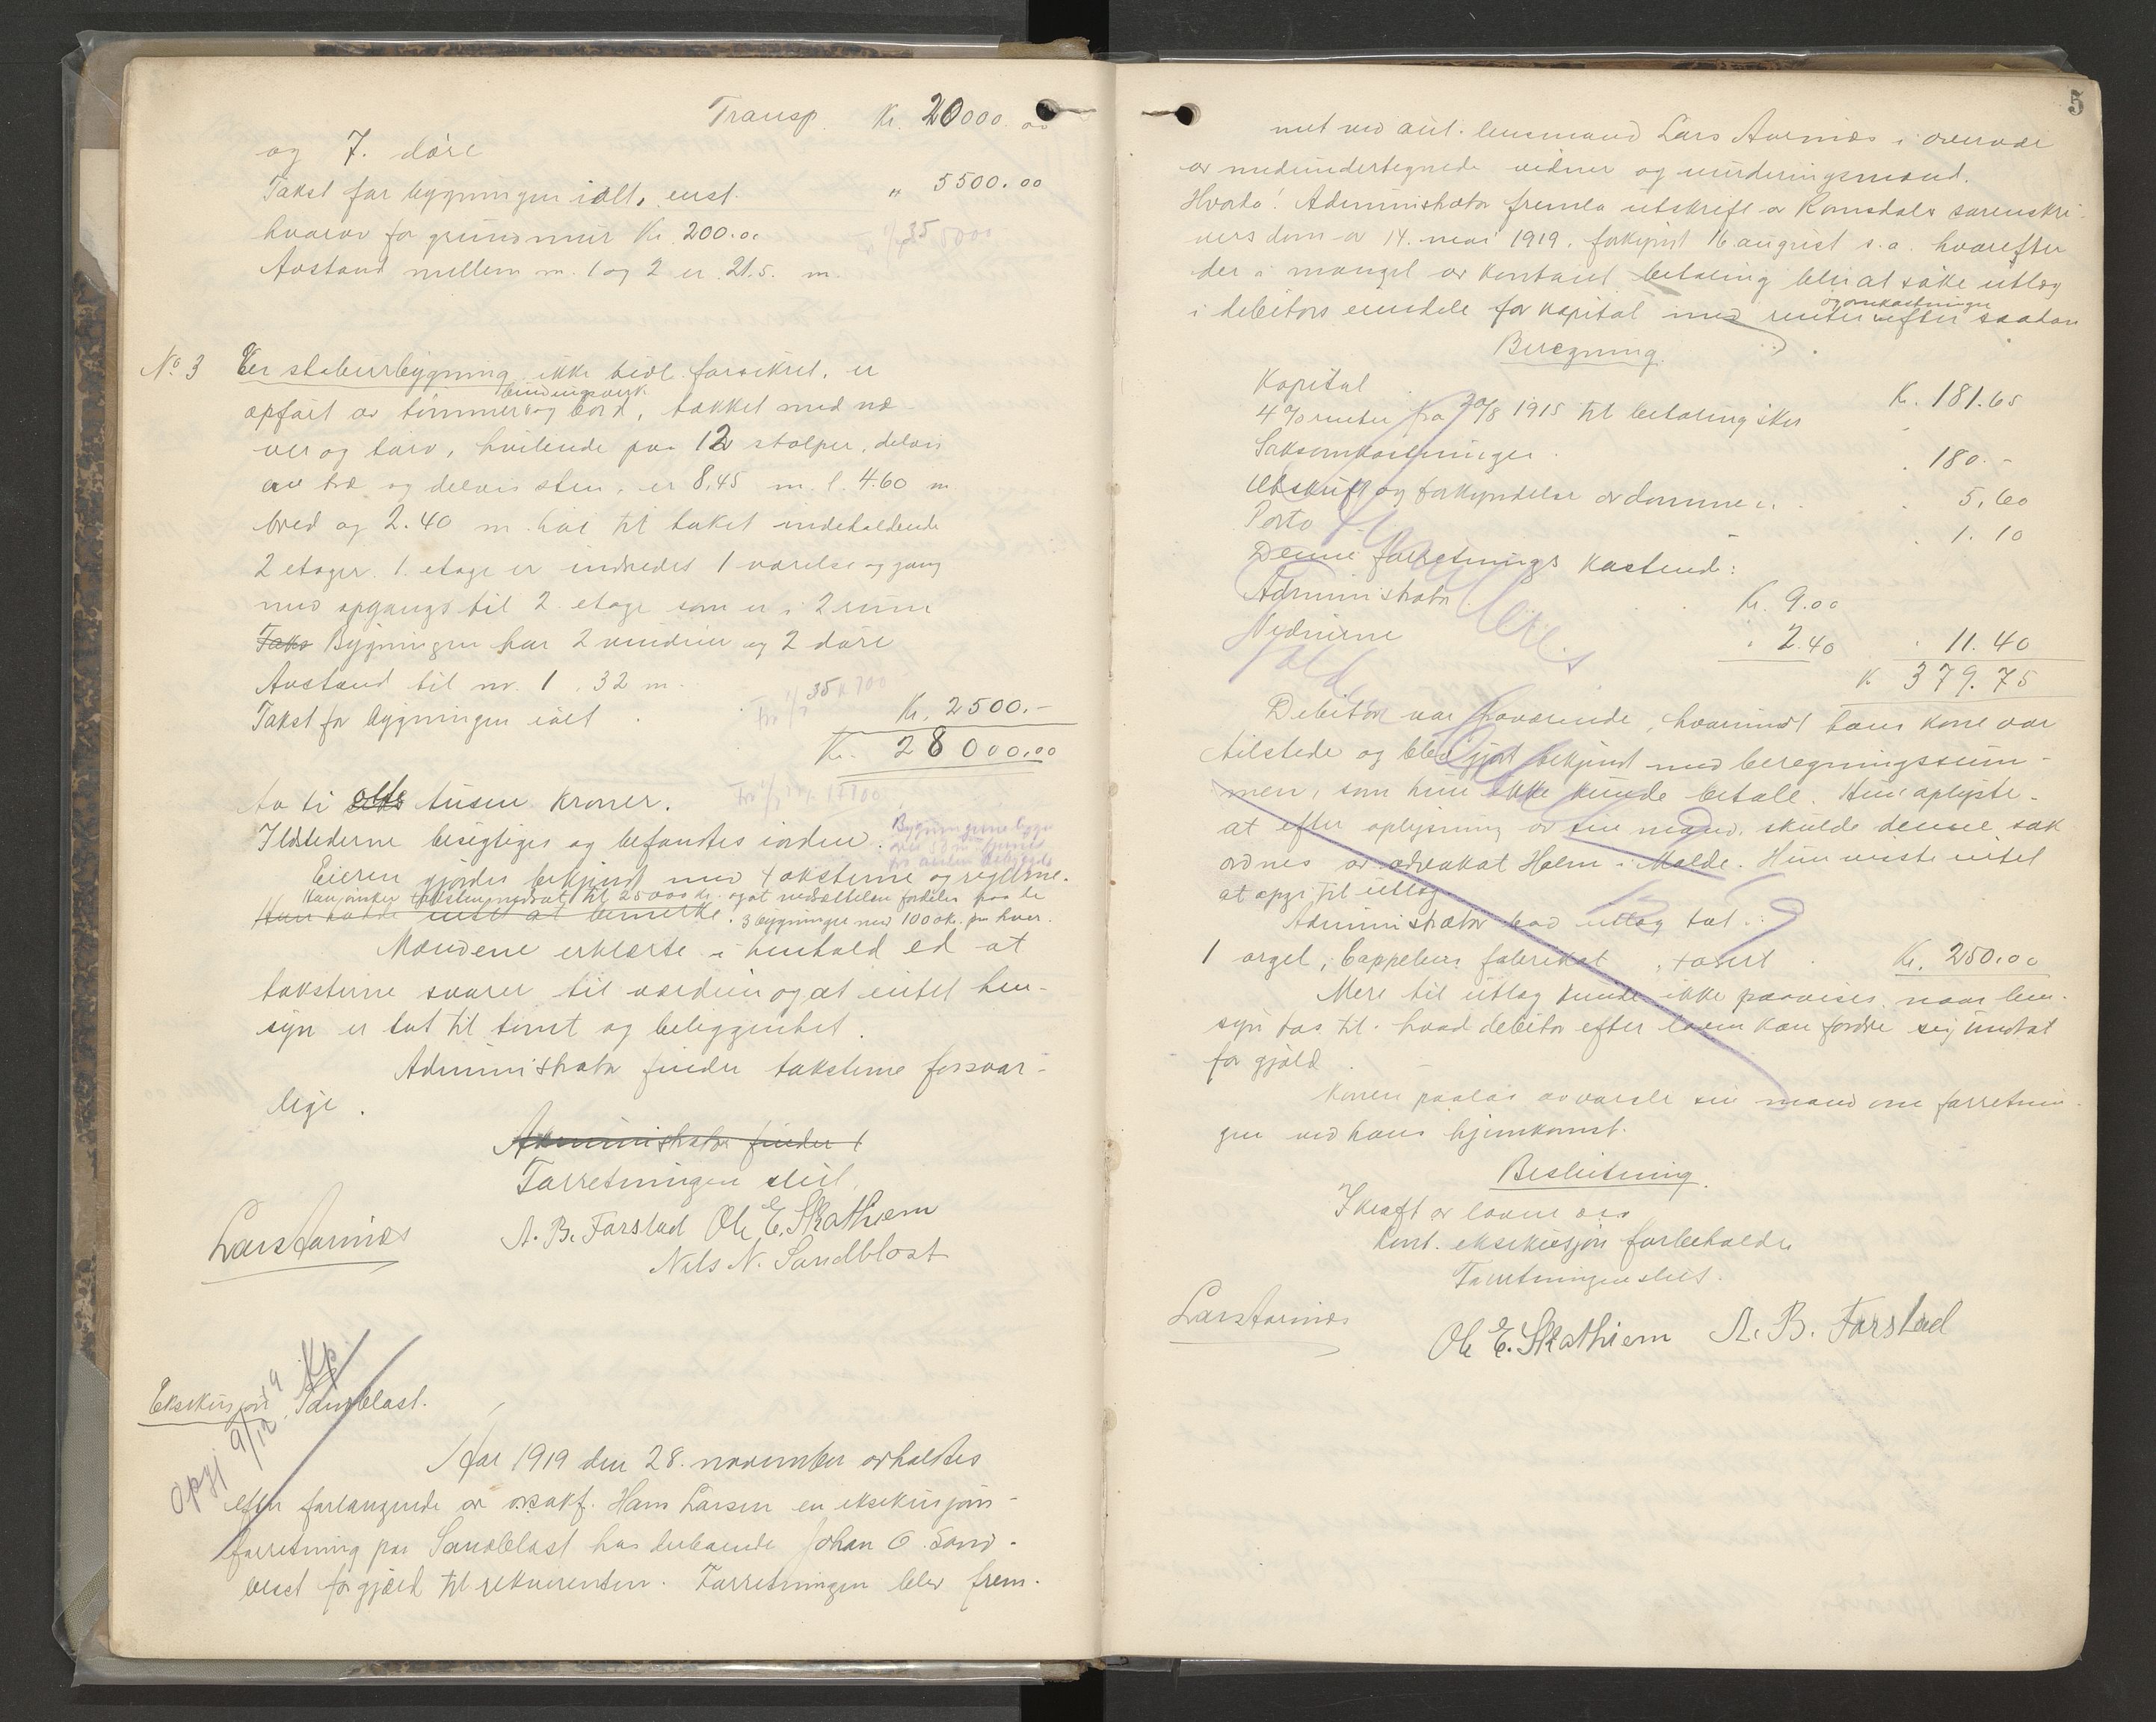 Transp. Kr. 20000.00
og 7. døre
Takst for bygningen ialt, enst. " 5500.00
hvorav for grundmur Kr. 200.00
Avstand mellem nr. 1 og 2 er 21.5. m.
35
No. 3 En stabursbygning ikke tidl. forsikret, er
bindingsverk
opført av tømmer og bord, tækket med næ-
ver og torv, hvilende paa 12 stolper, delvis
av træ og delvis sten, er 8,45 m. l. 4.60 m
bred og 2.40 m. høi til taket indeholdende
2 etager. 1. etage er indredet 1 værelse og gang
med opgang til 2. etage som er i 2 rum
Taks Bygningen har 2 vinduer og 2 døre
Avstand til nr. 1, 32 m.
35
Takst for bygningen ialt Kr. 2500.-
Kr. 28000.00
otte tusen kroner.
Ildstederne besigtiges og befandtes iorden.
Bygningene
Eieren gjordes bekjendt med taksterne og reglerne.
Han ønsker taksten nedsat til 25000 kr. og at nedsættelsen fordeles paa de
Han hadde intet at bemerke. 3 bygninger med 1000 kr. paa hver.
Mændene erklærte i henhold ed at
taksterne svarer til værdien og at intet hen-
syn er tat til tomt og beliggenhet.
Administrator finder taksterne forsvar-
lige.
Administrator finder t
Forretningen slut.
Lars Aarnæs A. B. Farstad Ole E. Skothiem
Nils N. Sandblost
Eksekusjon Sandblast.
Opgj 9/12 19
Aar 1919 den 28. november avholdtes
efter forlangende av o.r.sakf. Hans Larsen en eksekusjons-
forretning paa Sandblast hos derboende Johan O. Sand-
blast for gjæld til rekvirenten. Forretningen blev frem-
5
met ved aut. lensmand Lars Aarnæs i overvær
av medundertegnede vidner og vurderingsmænd.
Hvorda! Administrator fremla utskrift av Romsdals sorenskri-
vers dom av 14. mai 1919, forkyndt 16 august s.a. hvorefter
der i mangel av kontant betaling blir at søke utlæg
og omkostninger
i debitors eiendele for kapital med renter efter saadan
Beregning.
Kapital Kr. 181.65
4% renter fra 20/8 1915 til betaling sker
Saksomkostninger " 180.-
Utskrift og forkyndelse av dommen " 5,60
Porto " 1.10
Denne forretnings kostend:
Administrator Kr. 9.00
Vidnerne " 2.40 " 11.40
K 379.75
Debitor var fraværende, hvorimot hans kone var
tilstede og blev gjort bekjendt med beregningssum-
men, som hun ikke kunde betale. Hun oplyste
at efter oplysning av sin mand, skulde denne sak
ordnes av advokat Holm i Molde. Hun visste intet
at opgi til utlæg.
Administrator lod utlæg tat i:
1 orgel, Cappelens fabrikat, takst Kr. 250.00
Mere til utlæg kunde ikke paavises naar hen-
syn tas til hvad debitor efter loven kan fordre sig undtat
for gjæld.
Konen paalas avvarsle sin mand om forretnin-
gen ved hans hjemkomst.
Beslutning.
I kraft av loven
eksekusjon forbeholdes
Forretningen slut.
Lars Aarnæs
Ole E. Skothiem A. B. Farstad